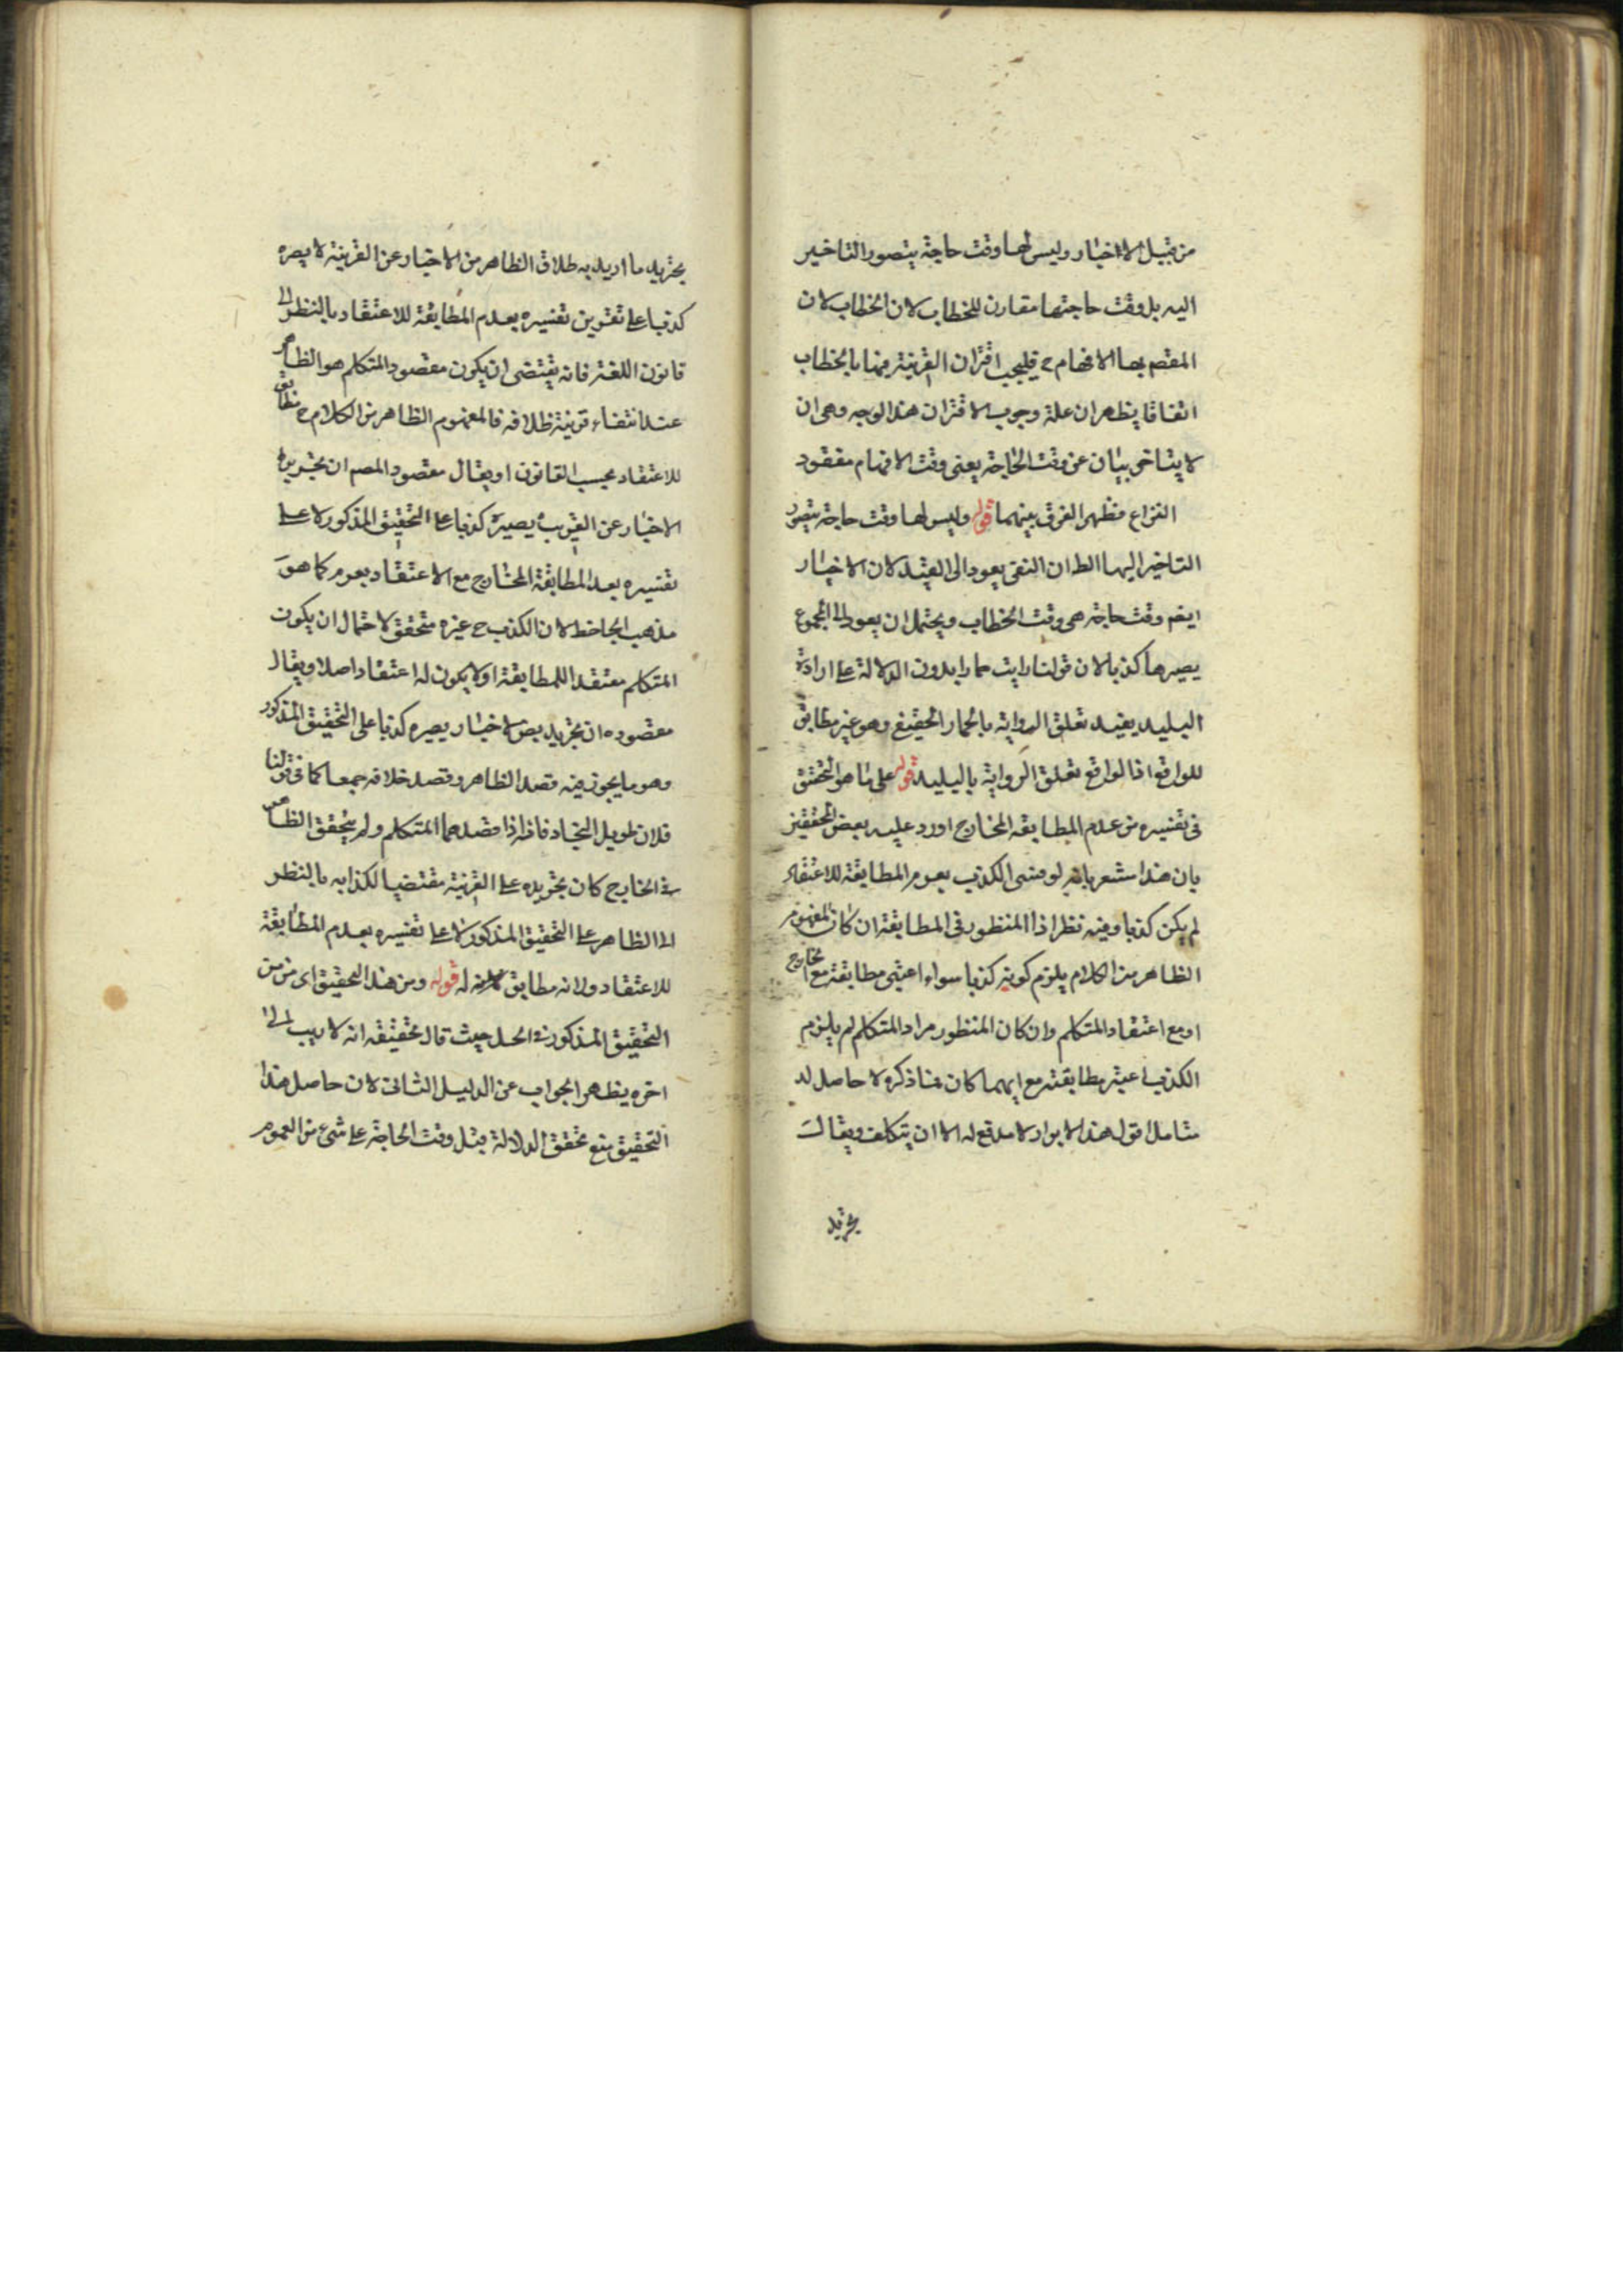 من قبيل الاخبار وليس لها وقت حاجة يتصور التاخير
اليه بل وقت حاجتها مقارن للخطاب لان الخطاب لان
المقصم بها الافهام ح فيجب اقتران القرينة فيها بالخطاب
اتفاقا يظهر ان علة وجوب الاقتران هذا الوجه وهى ان
لا يتاخر بيان عن وقت الحاجة يعنى وقت الافهام مفقود
النزاع فظهر الفرق بينهما قوله وليس لها وقت حاجة يتصور
التاخير اليها الظ ان النفى يعود الى القيد لان الاخبار
ايضم وقت حاجة هى وقت الخطاب ويحتمل ان يعود الى المجموع
يصيرها كذبا لان قولنا رايت حمارا بدون الدلالة على ارادة
البليد يفيد تعلق الرواية بالحمار الحقيقى وهو غير مطابق
للواقع اذ الواقع تعلق الرواية بالبليد قوله على ما هو التحقق
فى تفسيره من عدم المطابقة للخارج اورد عليه بعض المحققين
بان هذا مشعر بانه لو فسر الكذب بعدم المطابقة للاعتقاد
لم يكن كذبا وفيه نظر اذ المنظور فى المطابقة ان كان المفهوم
الظاهر من الكلام يلزم كونه كذبا سواء اعتبر مطابقته مع الخارج
او مع اعتقاد المتكلم وان كان المنظور مراد المتكلم لم يلزم
الكذب اعتبر مطابقته مع ايهما كان فما ذكره لا حاصل له
فتامل اقول هذا الايراد لا مدفع له الا ان يتكلف ويقال
تجريد
تجريد ما اريد به خلاف الظاهر من الاخبار عن القرينة لا يصيره
كذبا على تفسيره بعدم المطابقة للاعتقاد بالنظر الى
قانون اللغة فانه يقتضى ان يكون مقصود المتكلم هو الظاهر
عند انتفاء قرينة خلافه فالمفهوم الظاهر من الكلام ح مطابق
للاعتقاد بحسب القانون او يقال مقصود المصم ان تجريد
الاخبار عن القرينة يصيره كذبا على التحقيق المذكور لا على
تفسيره بعدم المطابقة للخارج مع الاعتقاد بعدم كما هو
مذهب الجاحظ لان الكذب ح غيره متحقق لاحتمال ان يكون
المتكلم معتقدا للمطابقة اولا يكون له اعتقاد اصلا ويقال
مقصوده ان تجريد بعض الاخبار يصيره كذبا على التحقيق المذكور
وهو ما يجوز فيه قصد الظاهر وقصد خلافه جمعا كما فى قولنا
فلان طويل النجاد فانه اذا قصدهما المتكلم ولم يتحقق الظاهر
فى الخارج كان تجريده على القرينة مقتضيا لكذابه بالنظر
الى الظاهر على التحقيق المذكور لا على تفسيره بعدم المطابقة
للاعتقاد ولانه مطابق له قوله ومن هذا التحقيق اى من
التحقيق المذكور فى الحل حيث قال تحقيقه انه لا ريب الى
اخره يظهر الجواب عن الدليل الثانى لان حاصل هذا
التحقيق منع تحقق الدلالة قبل وقت الحاجة على شىء من العموم